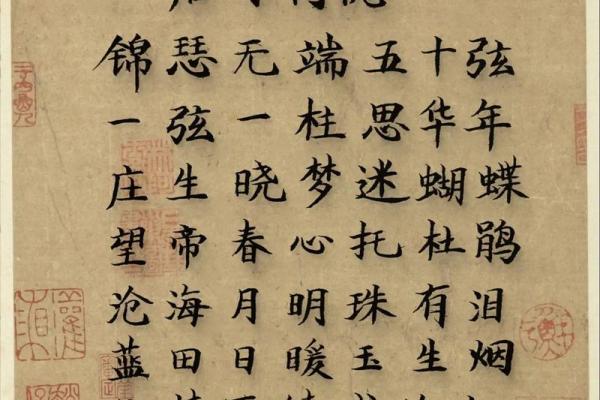 锦瑟无端五十弦
一弦一柱思华年
庄生晓梦迷蝴蝶
望帝春心托杜鹃
沧海月明珠有泪
蓝田日暖玉生烟